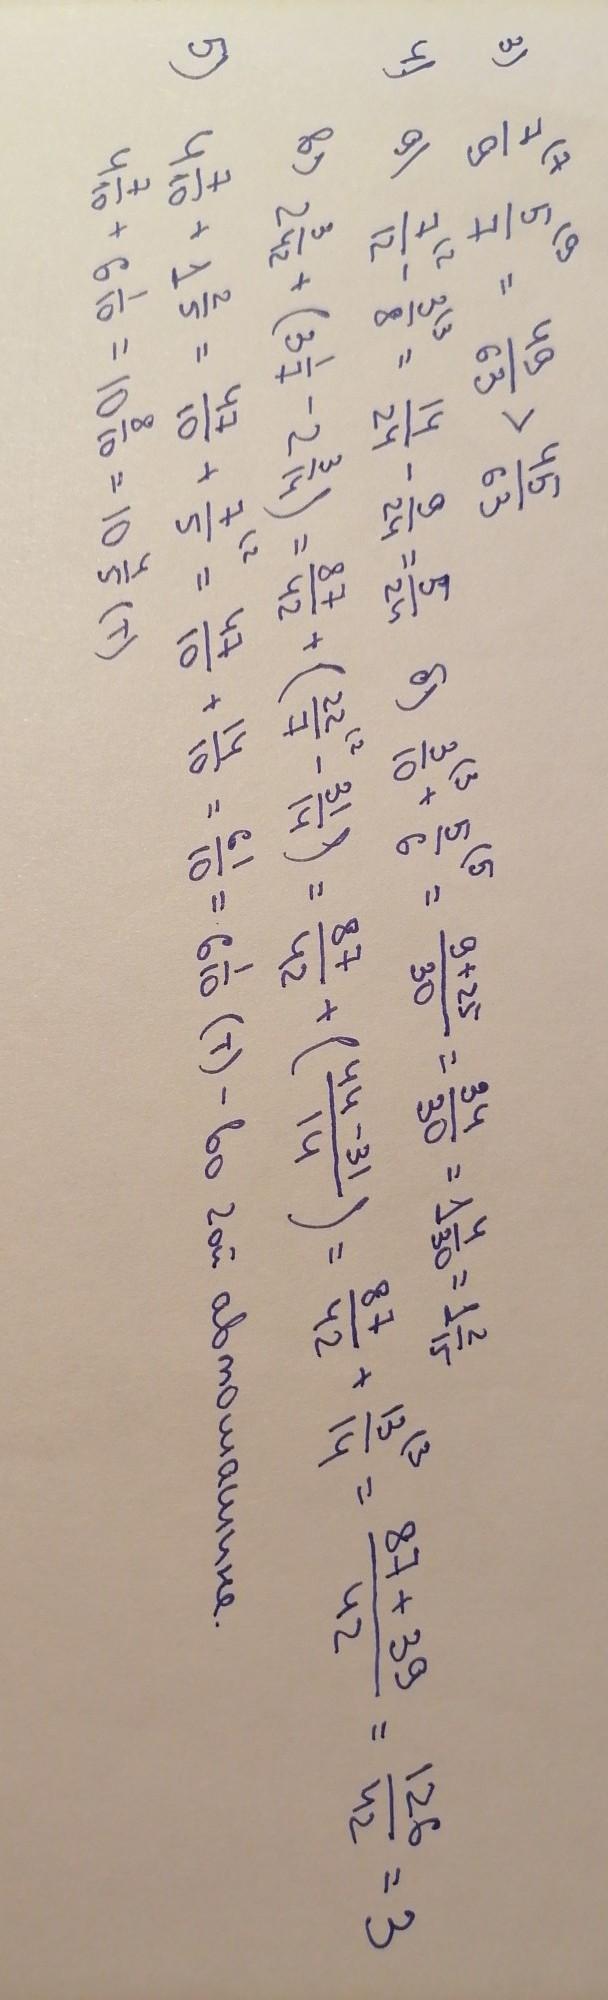 3) 7/9 (7 5/7 (9 = 49/63 > 45/63
4) а) 7/12 (2 - 3/8 (3 = 14/24 - 9/24 = 5/24 б) 3/10 (3 + 5/6 (5 = 9+25/30 = 34/30 = 1 4/30 = 1 2/15
в) 2 3/42 + (3 1/7 - 2 3/14) = 87/42 + (22/7 (2 - 31/14) = 87/42 + (44-31/14) = 87/42 + 13/14 (3 = 87+39/42 = 126/42 = 3
5) 4 7/10 + 1 2/5 = 47/10 + 7/5 (2 = 47/10 + 14/10 = 61/10 = 6 1/10 (т) - во 2ой автомашине.
4 7/10 + 6 1/10 = 10 8/10 = 10 4/5 (т)